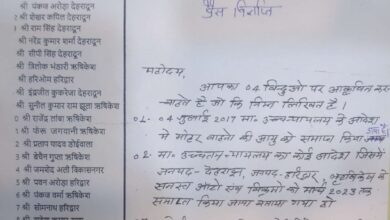 1 श्री पंकज अरोड़ा देहरादून
श्री शेखर कपिल देहरादून
श्री राम सिंह देहरादून
श्री नरेंद्र कुमार शर्मा देहरादून
श्री सीपी सिंह देहरादून
श्री त्रिलोक भंडारी ऋषिकेश
श्री हरिओम हरिद्वार
श्री इंद्रजीत कुकरेजा देहरादून
श्री सुनील कुमार राम झूला ऋषिकेश
1 श्री राजेंद्र लांबा ऋषिकेश
1 श्री फेरू जगवानी ऋषिकेश
2 श्री प्रताप यादव डोईवाला
3 श्री द्वेपैन गुप्ता ऋषिकेश
4 श्री जमशेद अली विकासनगर
5 श्री पवन अरोड़ा हरिद्वार
6 श्री विजय कुमार हरिद्वार
7 श्री सोमनाथ हरिद्वार
प्रेस विज्ञप्ति
महोदय,
आपका 04 बिन्दुओ पर आकृषित कर
चाहते है जो कि निम्न लिखित है।
01. 04 जुलाई 2017 मा० उच्च न्यायालय के आदेश
मे मोटर वाहनो की आयु को समाप्त किया
02. मा० उच्चन्यायालय का कोई आदेश जिसमे
जनपद- देहरादून, जनपद हरिद्वार, ऋषिकेश के
समस्त ऑटो संघ विक्रमो को मार्च 2023 तक
समाप्त किया जाना बताया गया हो